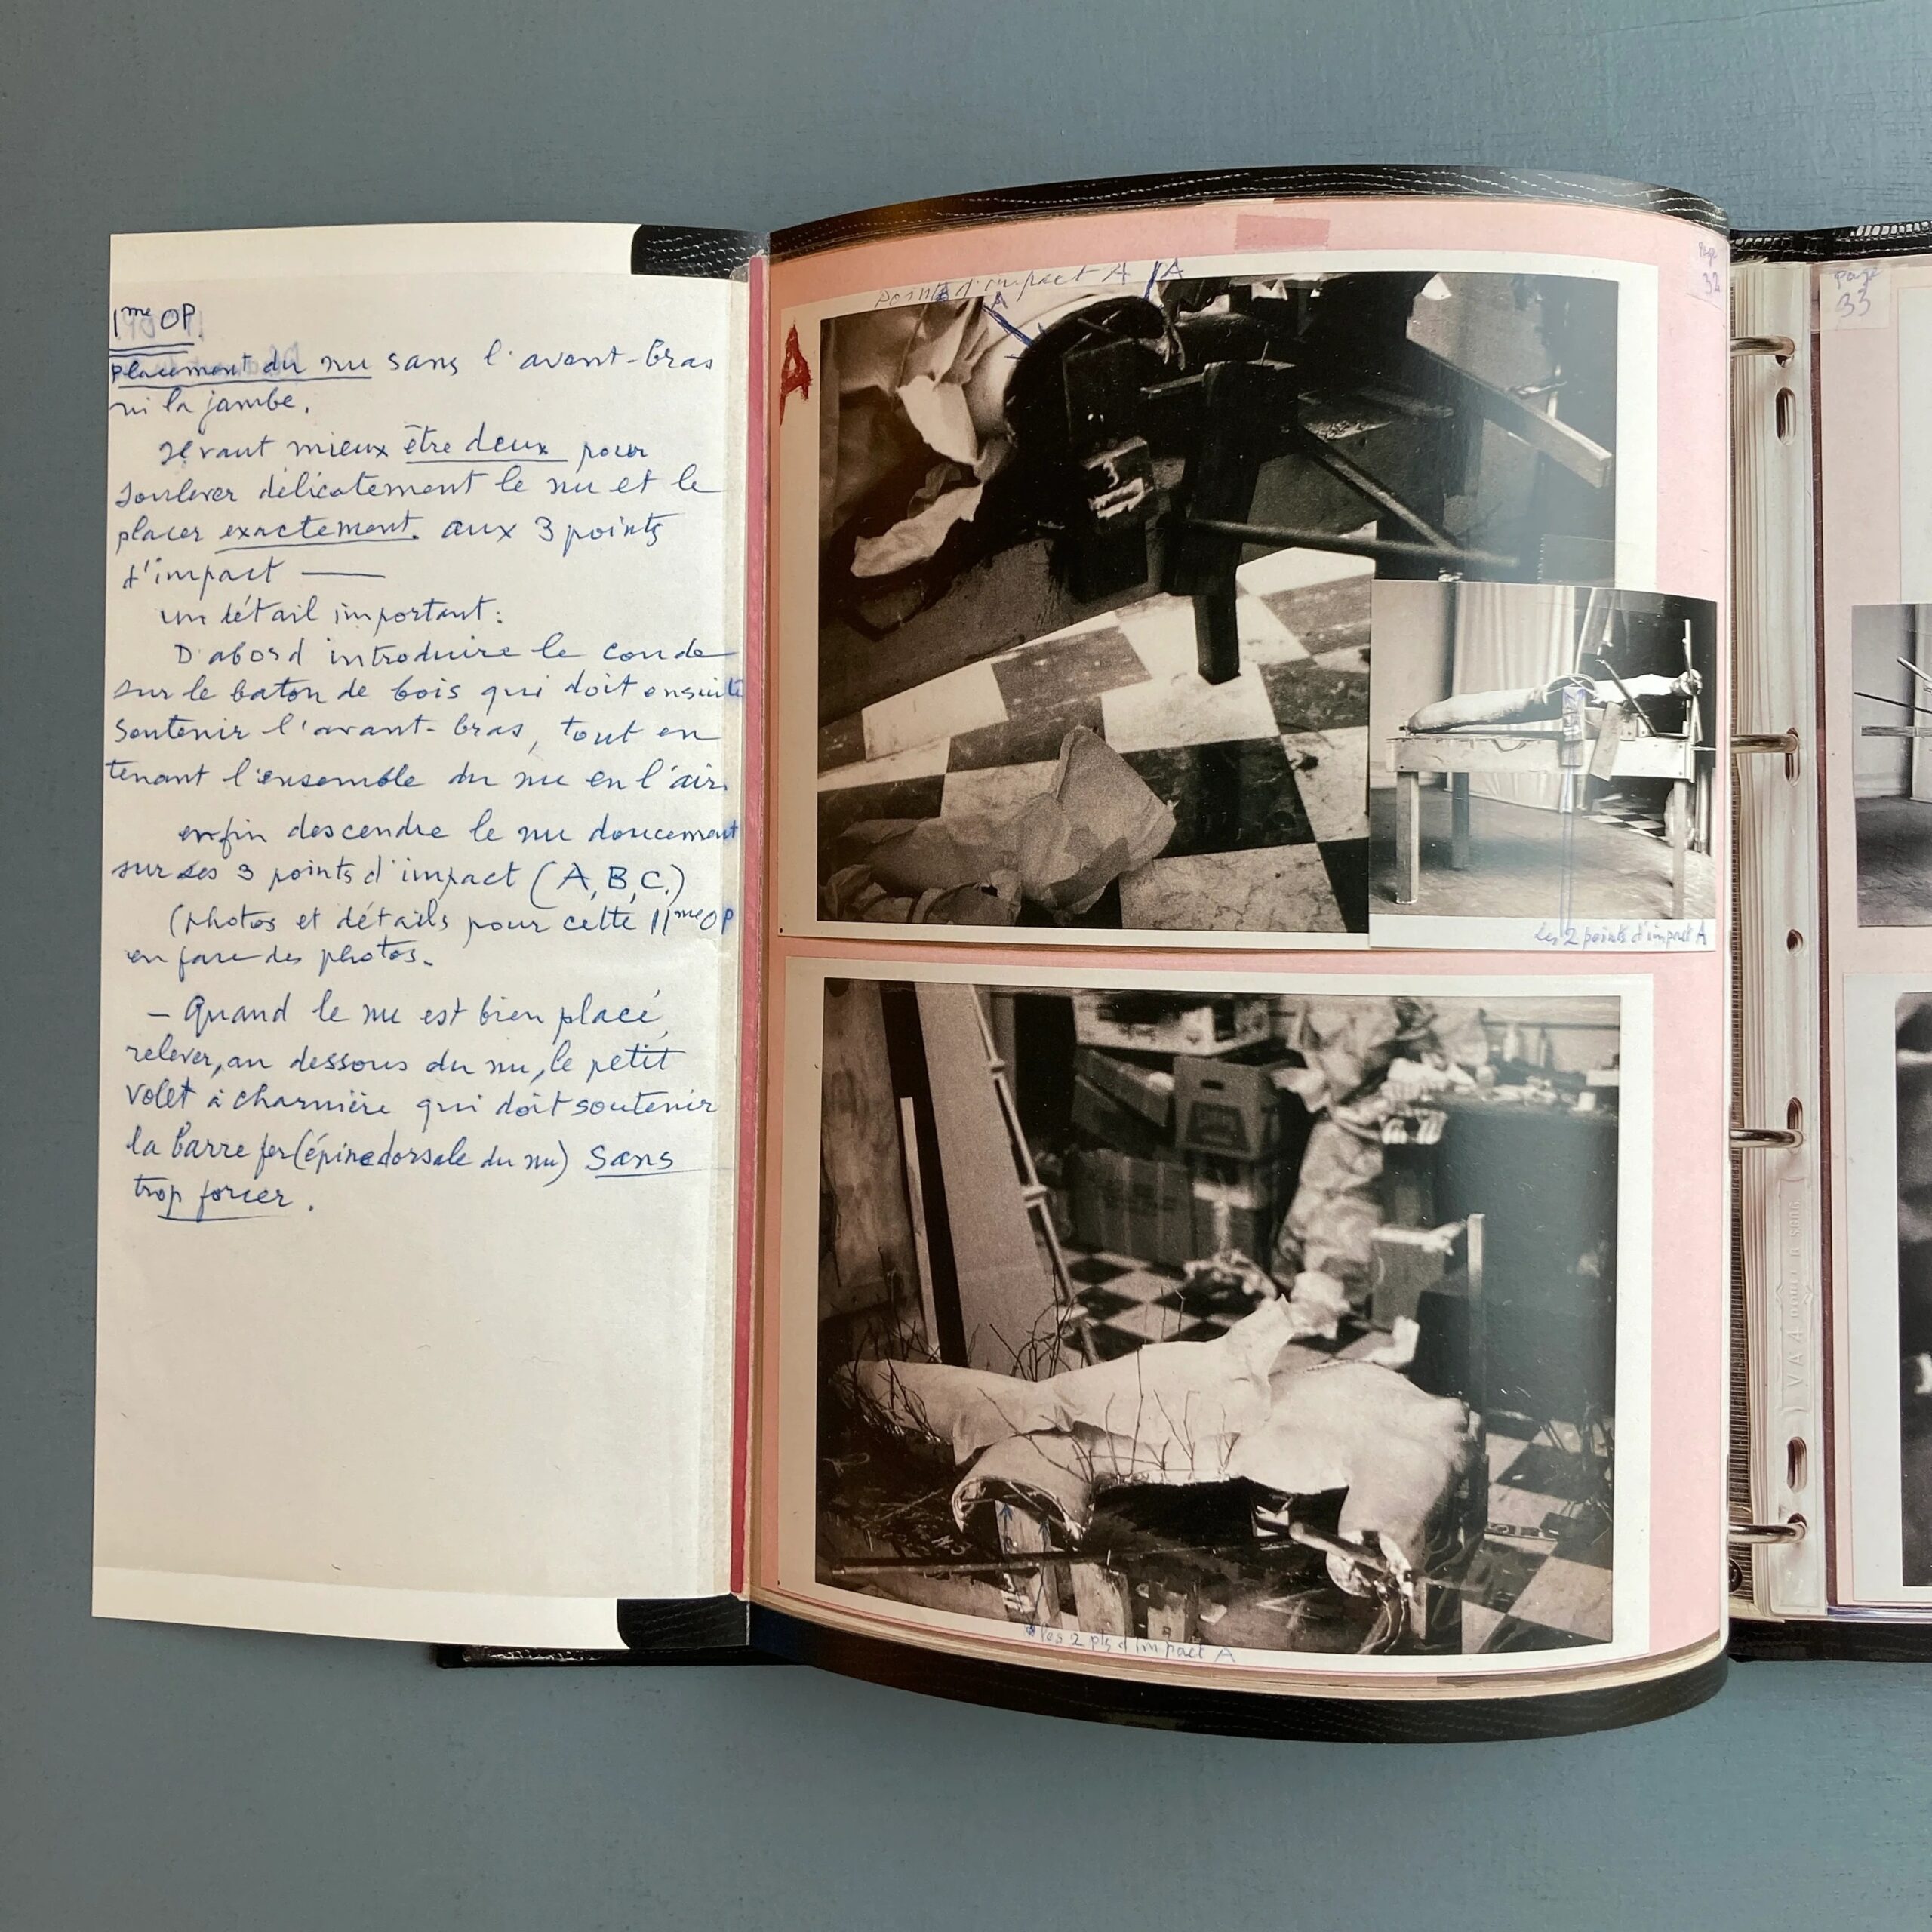 11me OP
Placement du nu sans l'avant-bras
ni la jambe.
Il vaut mieux être deux pour
soulever délicatement le nu et le
placer exactement. aux 3 points
d'impact ——
un détail important:
D'abord introduire le coude
sur le baton de bois qui doit ensuite
soutenir l'avant-bras, tout en
tenant l'ensemble du nu en l'air.
enfin descendre le nu doucement
sur ses 3 points d'impact (A, B, C.)
(photos et détails pour cette 11me OP
en faire des photos.
— Quand le nu est bien placé,
relever, au dessous du nu, le petit
volet à charnière qui doit soutenir
la barre fer (épine dorsale du nu) sans
trop forcer.
Points d'impact A
A
A
A
Page
32
les 2 points d'impact A
les 2 pts d'impact A
Page
33